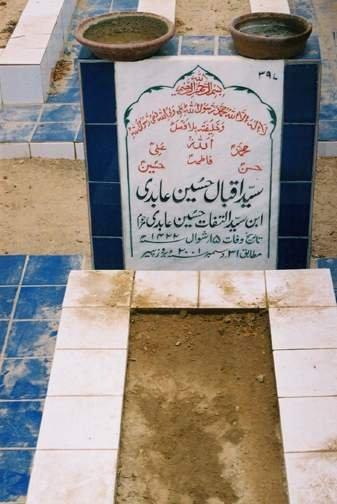 ۳۹۷
بسم اللہ الرحمن الرحیم
لا الہ الا اللہ محمد رسول اللہ علی ولی اللہ وصی رسول اللہ
و خلیفتہ بلا فصل
اللہ
محمدؐ علیؑ
فاطمہؑ
حسنؑ حسینؑ
سید اقبال حسین عابدی
ابن سید التفات حسین عابدی
تاریخ وفات ۱۵ شوال ۱۴۲۲ھ
مطابق ۳۱ دسمبر ۲۰۰۱ء بروز پیر